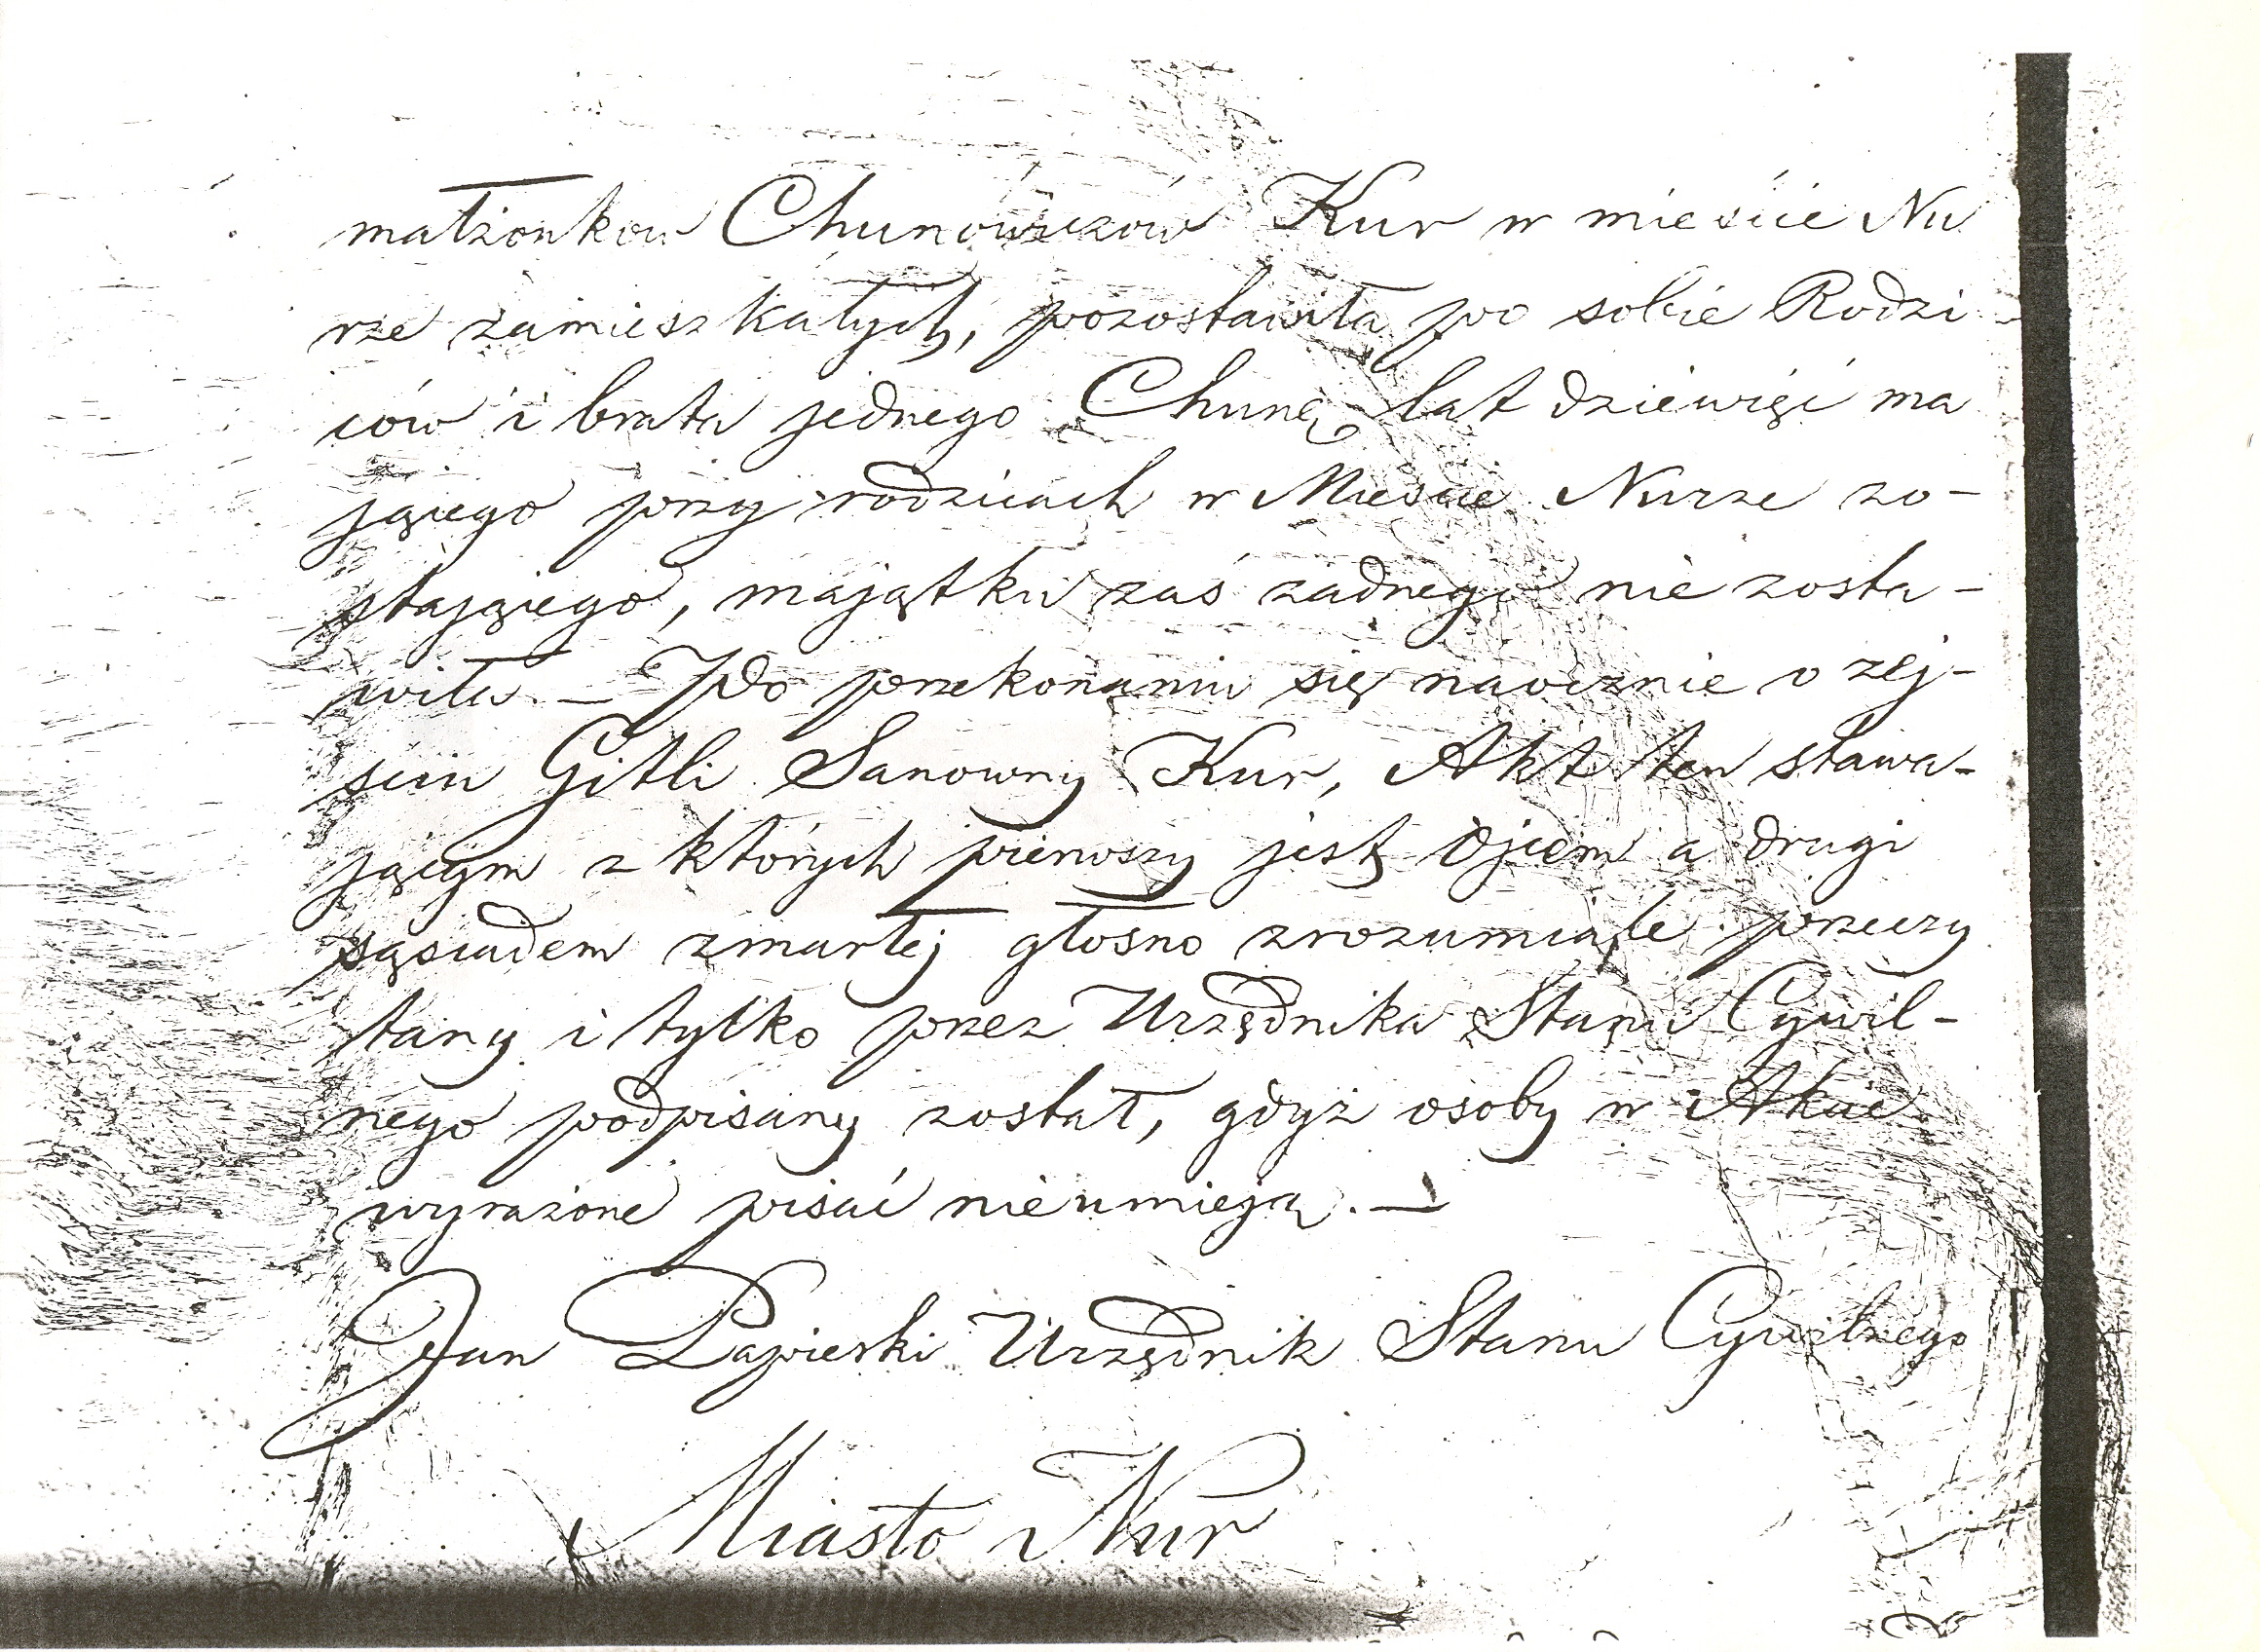 małżonkow Chunowiczów Kur w mieście Nu
rze zamieszkałych, pozostawiła po sobie Rodzi
ców i brata jednego Chunę lat dziewięć ma
jącego przy rodzicach w Mieście Nurze zo-
stającego, majątku zaś żadnego nie zosta-
wiła. — Po przekonaniu się naocznie o zej-
sciu Gitli Sanowny Kur, Akt ten stawa-
jącym z których pierwszy jest Ojcem a drugi
sąsiadem zmarłej głosno zrozumiale przeczy
tany i tylko przez Urzędnika Stanu Cywil-
nego podpisany został, gdyż osoby w Akcie
wyrażone pisać nieumieją. —
Jan Łapieski Urzędnik Stanu Cywilnego
Miasto Nur